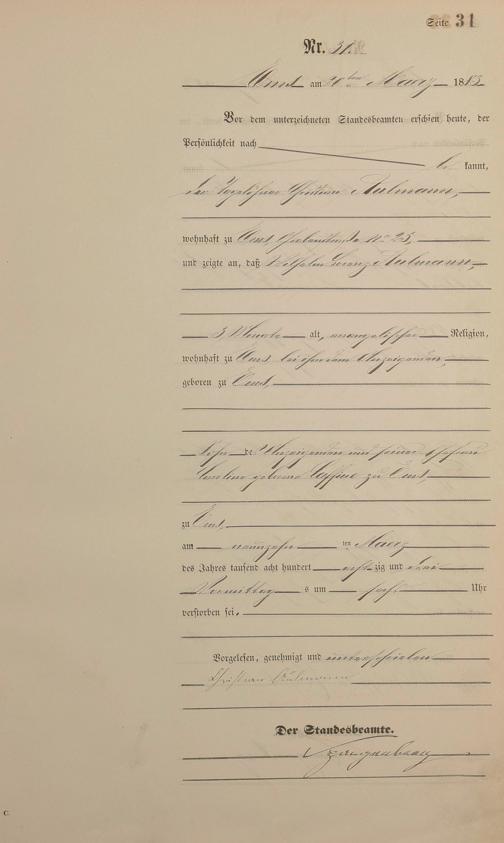 Seite 31
Nr. 31.
Ems am 20ten Maerz 1883
Vor dem unterzeichneten Standesbeamten erschien heute, der
Persönlichkeit nach
be kannt,
der Taglöhner Christian Aulmann,
wohnhaft zu Ems, No 25,
und zeigte an, daß Wilhelm Aulmann,
3 Monate alt, evangelischer Religion,
wohnhaft zu Ems bei Anzeigenden,
geboren zu Ems,
Sohn des Anzeigenden und seiner Ehefrau
geborene zu Ems,
zu Ems,
am neunzehn ten Maerz
des Jahres tausend acht hundert acht zig und drei
Vormittags um Uhr
verstorben sei.
Vorgelesen, genehmigt und unterschrieben
Christian Aulmann
Der Standesbeamte.
C.